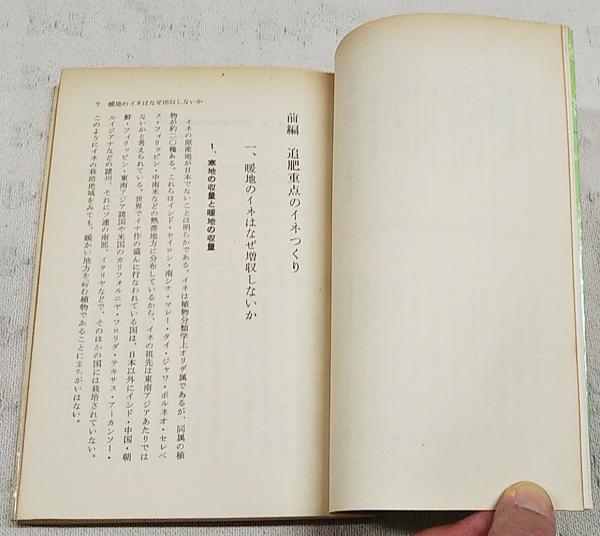 前編 追肥重点のイネつくり
一、暖地のイネはなぜ増収しないか
1、寒地の収量と暖地の収量
イネの原産地が日本でないことは明らかである。イネは植物分類学上オリザ属であるが、同属の植
物が約二〇種ある。これらはインド・セイロン・南シナ・マレー・タイ・ジャワ・ボルネオ・セレベ
ス・フィリッピン・中南米などの熱帯地方に分布しているから、イネの祖先は東南アジアあたりでは
ないかと考えられている。世界でイナ作の盛んに行なわれている国は、日本以外にインド・中国・朝
鮮・フィリッピン・東南アジア諸国や米国のカリフォルニヤ・フロリダ・テキサス・アーカンソー・
ルイジアナなどの諸州、それにソ連の南部、イタリヤなどで、そのほかの国には栽培されていない。
このようにイネの栽培地域をみても、暖かい地方を好む植物であることにまちがいはない。
7 暖地のイネはなぜ増収しないか